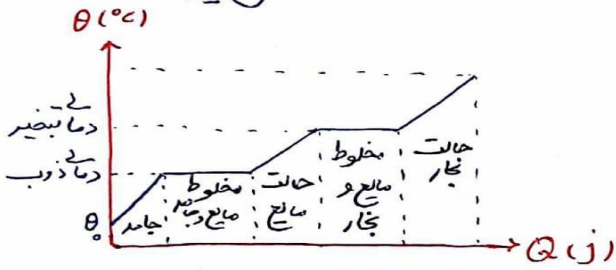 θ (°C)
دمای تبخیر
دمای ذوب
θ₀
جامد
مخلوط مایع و جامد
حالت مایع
مخلوط مایع و بخار
حالت بخار
Q (j)